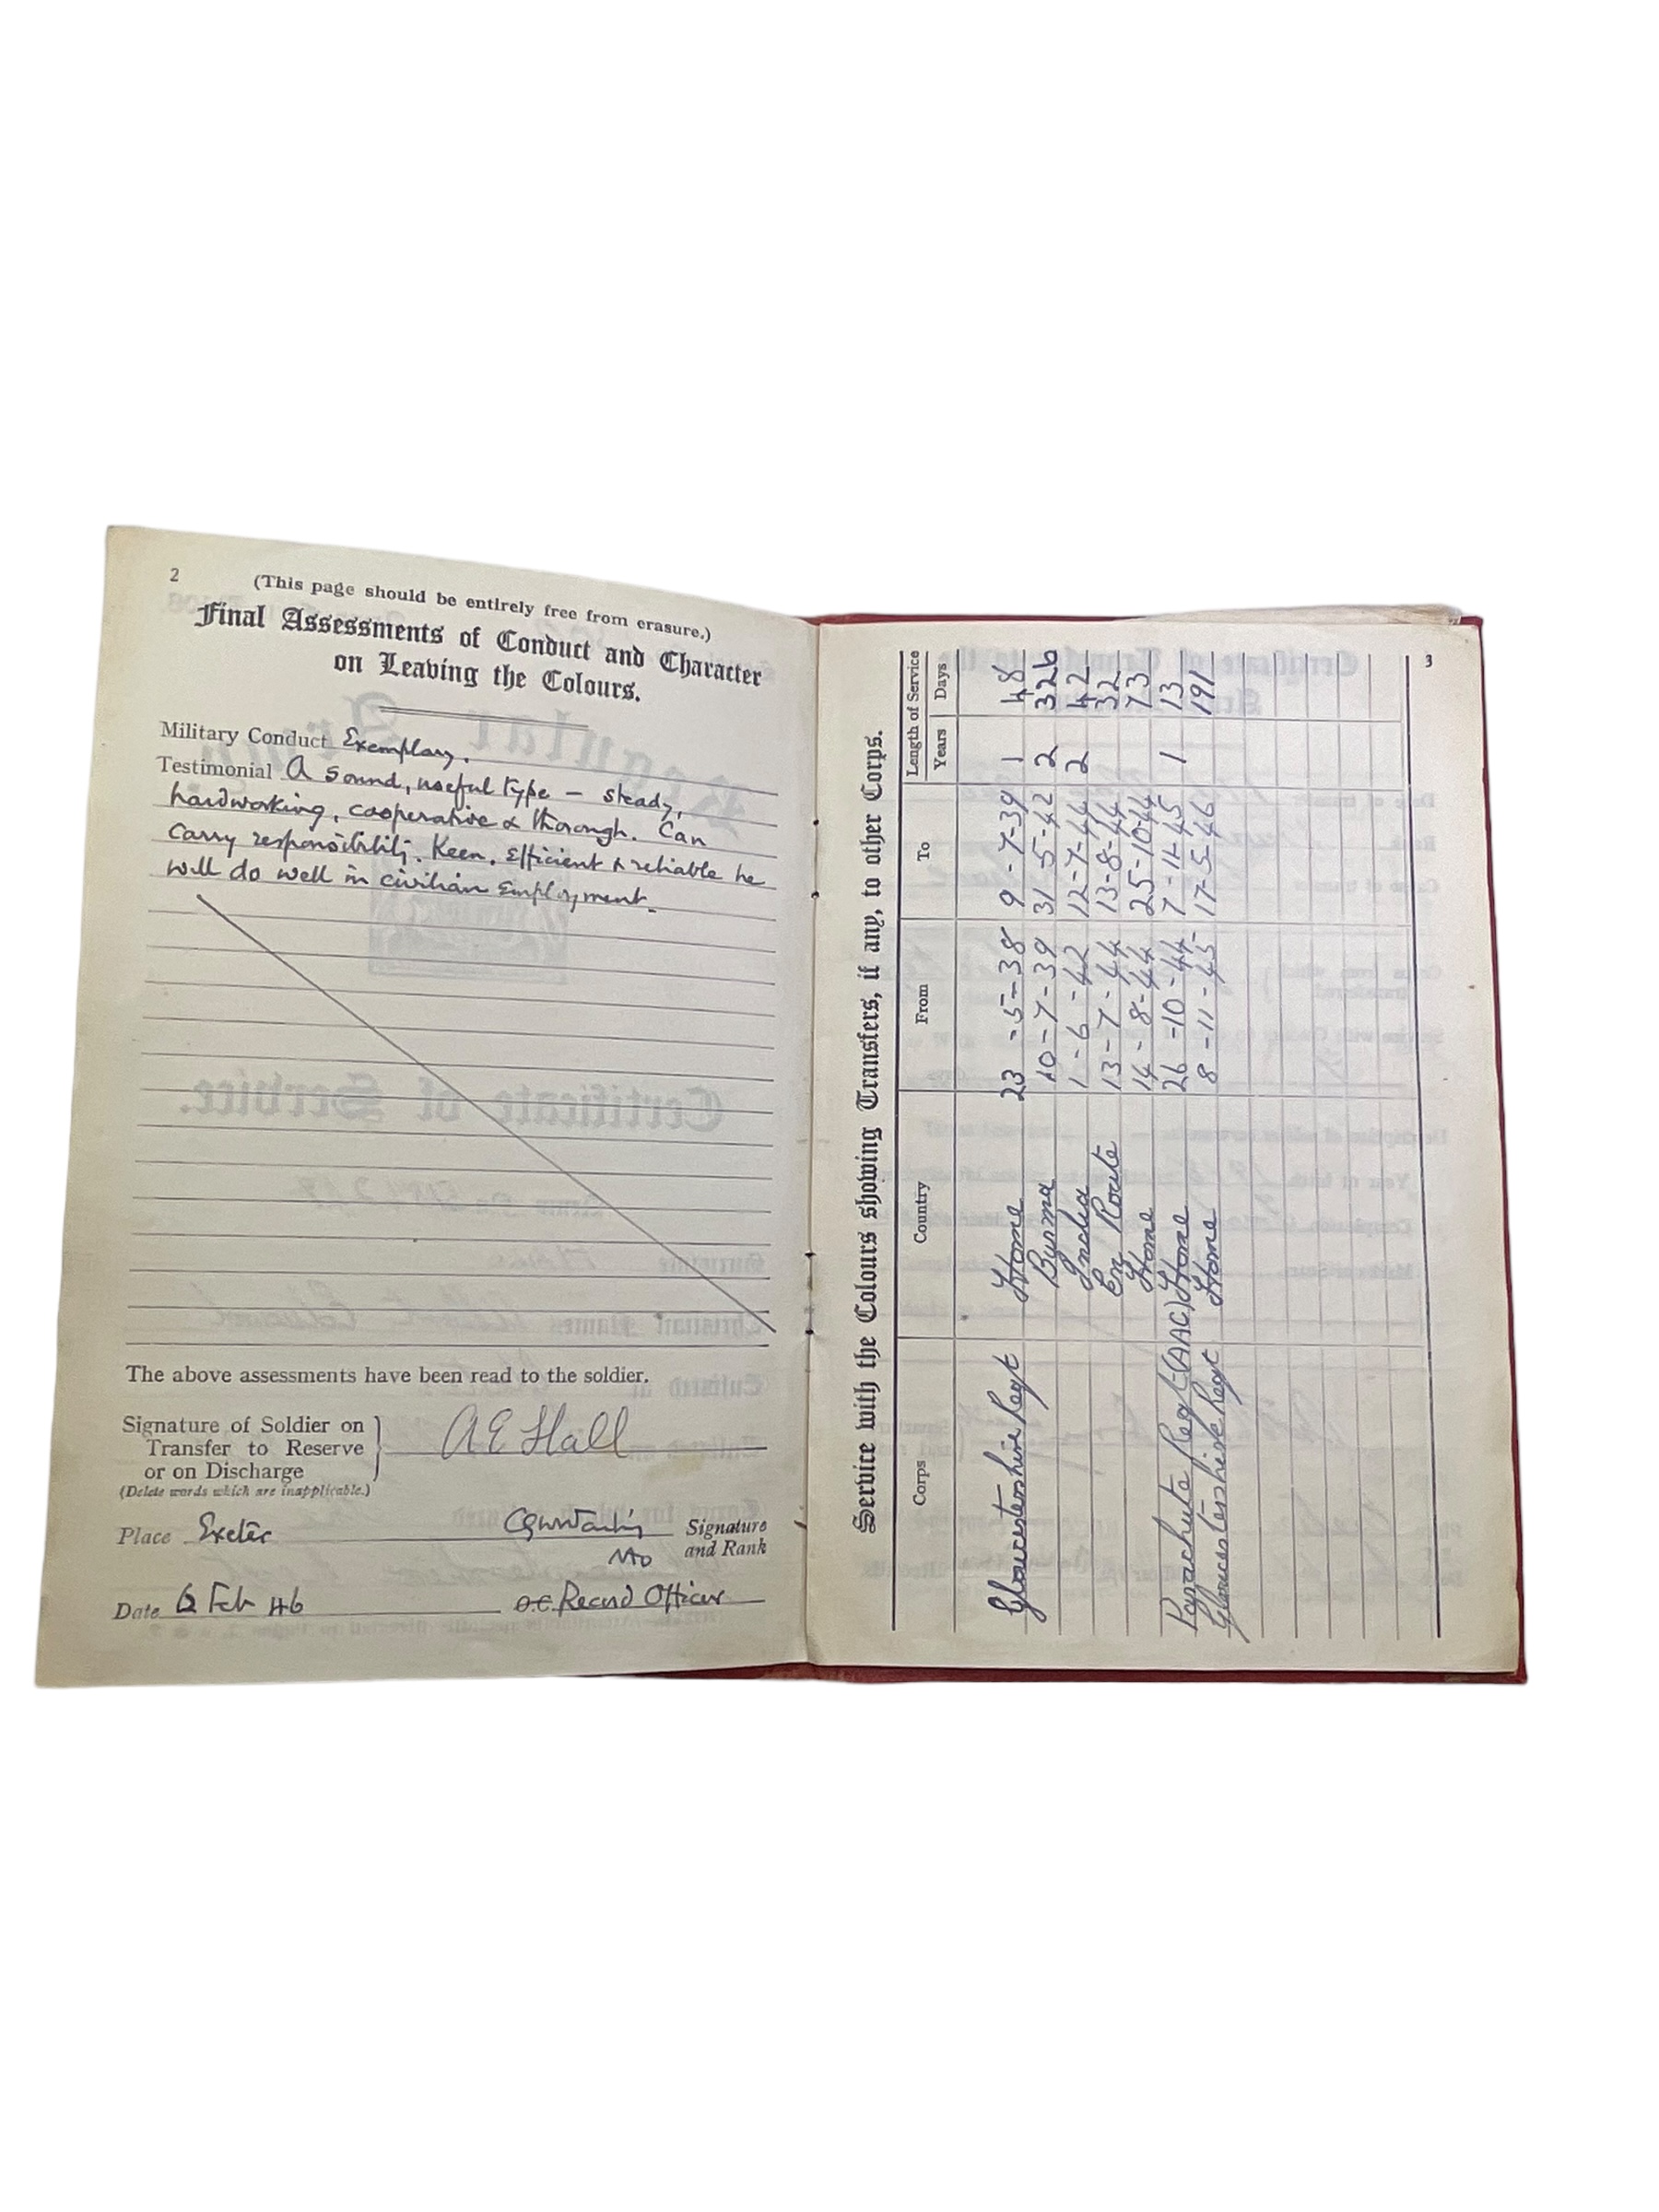 2
(This page should be entirely free from erasure.)
Final Assessments of Conduct and Character
on Leaving the Colours.
Military Conduct Exemplary.
Testimonial A sound, useful type – steady,
hardworking, cooperative & thorough. Can
carry responsibility. Keen, efficient & reliable he
will do well in civilian employment.
The above assessments have been read to the soldier.
Signature of Soldier on
Transfer to Reserve
or on Discharge
A E Hall
(Delete words which are inapplicable.)
Place Exeter
Signature
and Rank
Date 6 Feb 46 O.C. Record Officer
3
Service with the Colours showing Transfers, if any, to other Corps.
Corps Country From To Length of Service
Years Days
Gloucestershire Regt Home 23-5-38 9-7-39 1 48
Burma 10-7-39 31-5-42 2 326
India 1-6-42 12-7-44 2 42
En Route 13-7-44 13-8-44 32
Home 14-8-44 25-10-44 73
Parachute Regt (AAC) Home 26-10-44 7-11-45 1 13
Gloucestershire Regt Home 8-11-45 17-5-46 191